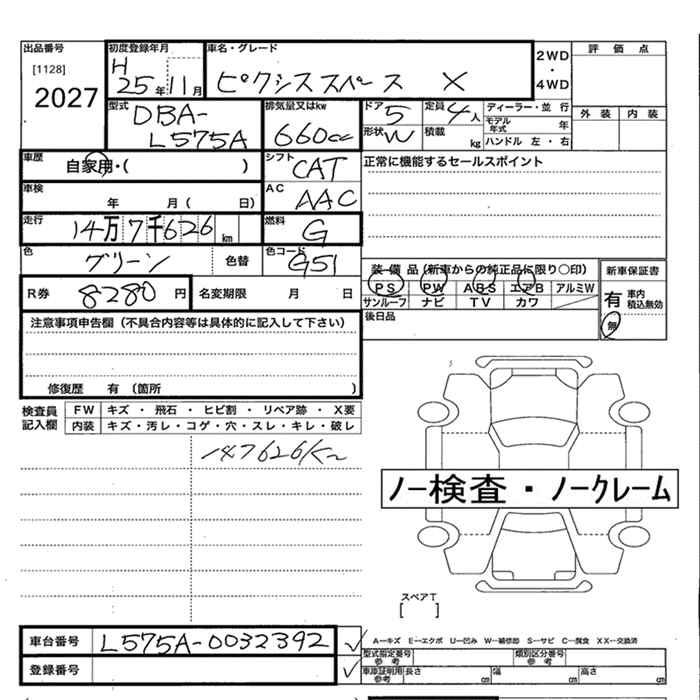 出品番号
[1128]
2027
初度登録年月
H
25年11月
車名・グレード
ピクシススペース X
2WD
・
4WD
評価点
外装 内装
型式
DBA-
L575A
排気量又はkw
660cc
ドア 5
定員 4人
ディーラー・並行
モデル年式 年
形状 W
積載 kg
ハンドル 左・右
車歴
自家用・( )
シフト
CAT
正常に機能するセールスポイント
車検
年 月( 日)
AC
AAC
走行
14万7千626km
燃料
G
色
グリーン 色替
色コード
G51
装備品(新車からの純正品に限り○印)
PS PW ABS エアB アルミW
サンルーフ ナビ TV カワ
新車保証書
有 車内積込無効
無
R券 8280円
名変期限 月 日
後日品
注意事項申告欄(不具合内容等は具体的に記入して下さい)
修復歴 有(箇所 )
検査員
記入欄
FW キズ・飛石・ヒビ割・リペア跡・X要
内装 キズ・汚レ・コゲ・穴・スレ・キレ・破レ
147626Km
ノー検査・ノークレーム
スペアT
[ ]
車台番号 L575A-0032392
登録番号
A―キズ E―エクボ U―凹み W―補修跡 S―サビ C―腐食 XX―交換済
型式指定番号
参考
類別区分番号
参考
車庫証明用
参考
長さ cm 幅 cm 高さ cm